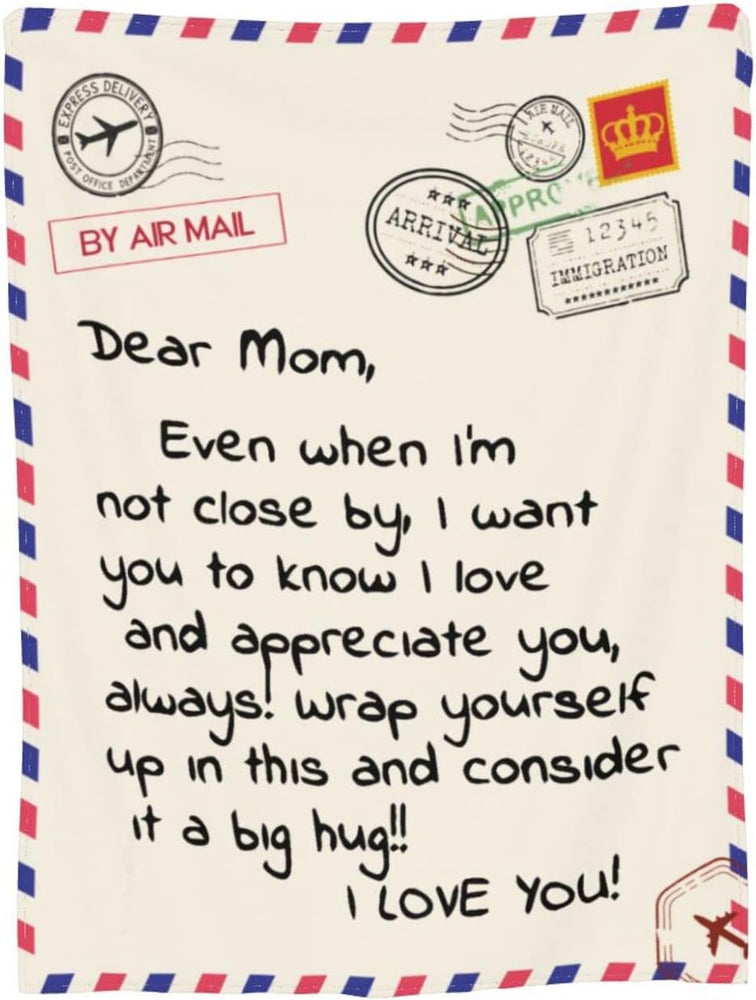 EXPRESS DELIVERY
POST OFFICE DEPARTMENT
AIR MAIL
APPRO
BY AIR MAIL
ARRIVAL
12345
IMMIGRATION
Dear Mom,
Even when I'm
not close by, I want
you to know I love
and appreciate you,
always! wrap yourself
up in this and consider
it a big hug!!
I LOVE YOU!